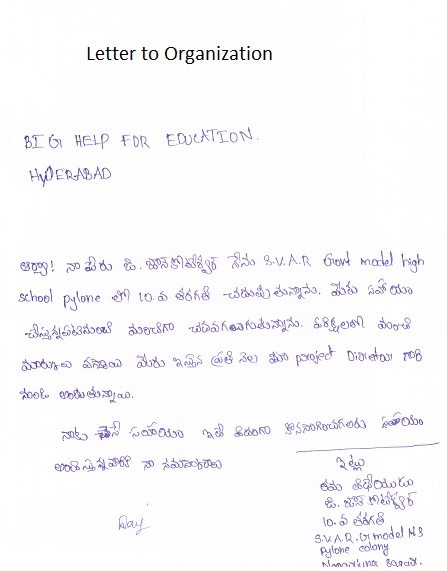 Letter to Organization
BIG HELP FOR EDUCATION.
HYDERABAD
ఆర్యా! నా పేరు జి. జాన్ కోటేశ్వర్ నేను S.V.A.R Govt model high
school pylone లో 10. వ తరగతి చదువుతున్నాను. మీరు సహాయం
చేస్తున్నప్పటినుండి మంచిగా చదవగలుగుతున్నాను. పరీక్షలలో మంచి
మార్కులు వస్తున్నాయి మీరు ఇచ్చిన ప్రతి నెల మా project Director గారి
నుండి అందుతున్నాయి.
నాకు చేసే సహాయం ఇదే విధంగా కొనసాగించగలరు సహాయం
అందిస్తున్నవారికి నా నమస్కారాలు
ఇట్లు
తమ విధేయుడు
జి. జాన్ కోటేశ్వర్
10. వ తరగతి
S.V.A.R. G. model H.S
Pylone colony
Nagarjuna Sagar.